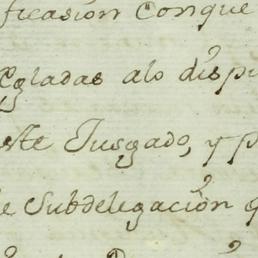 ficasion Conque
egladas alo dispu
ste Jusgado, y p
e Subdelegacion q